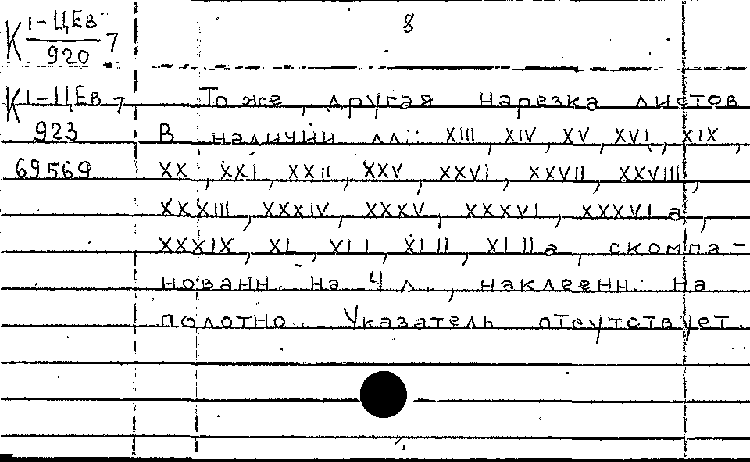 8
К 1-ЦЕв 7
920
К 1-ЦЕв 7 То же, другая нарезка листов
923 В наличии лл: XIII, XIV, XV, XVI, XIX,
69569 XX, XXI, XXII, XXV, XXVI, XXVII, XXVIII,
XXXIII, XXXIV, XXXV, XXXVI, XXXVI а,
XXXIX, XL, XLI, XLII, XLIIа, скомпа-
нованн. на 4 л., наклеенн. на
полотно. Указатель отсутствует